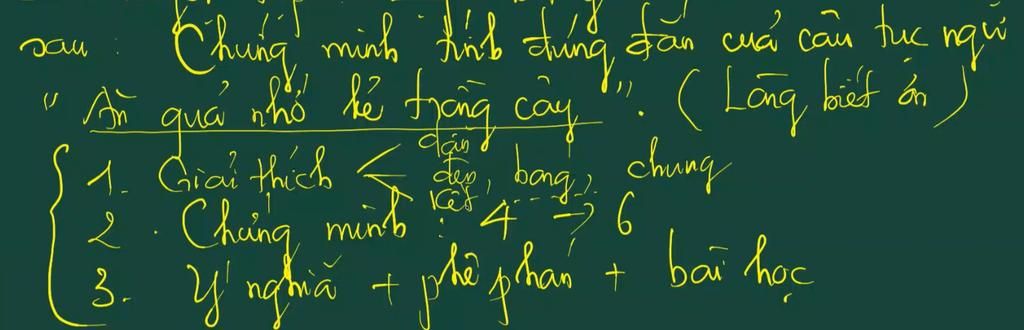 sau : Chứng minh tính đúng đắn của câu tục ngữ
" Ăn quả nhớ kẻ trồng cây ". ( Lòng biết ơn )
1. Giải thích < đen, bóng, chung
2. Chứng minh : 4 → 6
3. Ý nghĩa + phê phán + bài học